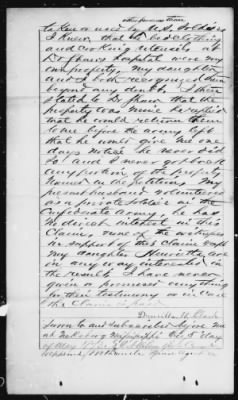 other persons than
taken or used by U.S. Soldiers
I knew that the beds & clothing
and cooking utensils at
Dr Shaws hospital were my
own property. My daughter
and I both recognized them
beyond any doubt. I then
stated to Dr Shaw that the
property was mine he replied
that he would return them
to me before the army left
that he would give me one
days notice he never did
so and I never got back
any portion of the property
named in the petition. My
present husband volunteered
as a private soldier in the
Confederate army, he has
no direct interest in this
Claim, none of the witnesses
in support of this claim except
my daughter Henrietta are
in any way interested in
the result I have never
given or promised anything
for their testimony or in case
the claim is paid
Clark
Sworn to and subscribed before me
at Vicksburg Mississippi this 5th day
of May
Special Agent